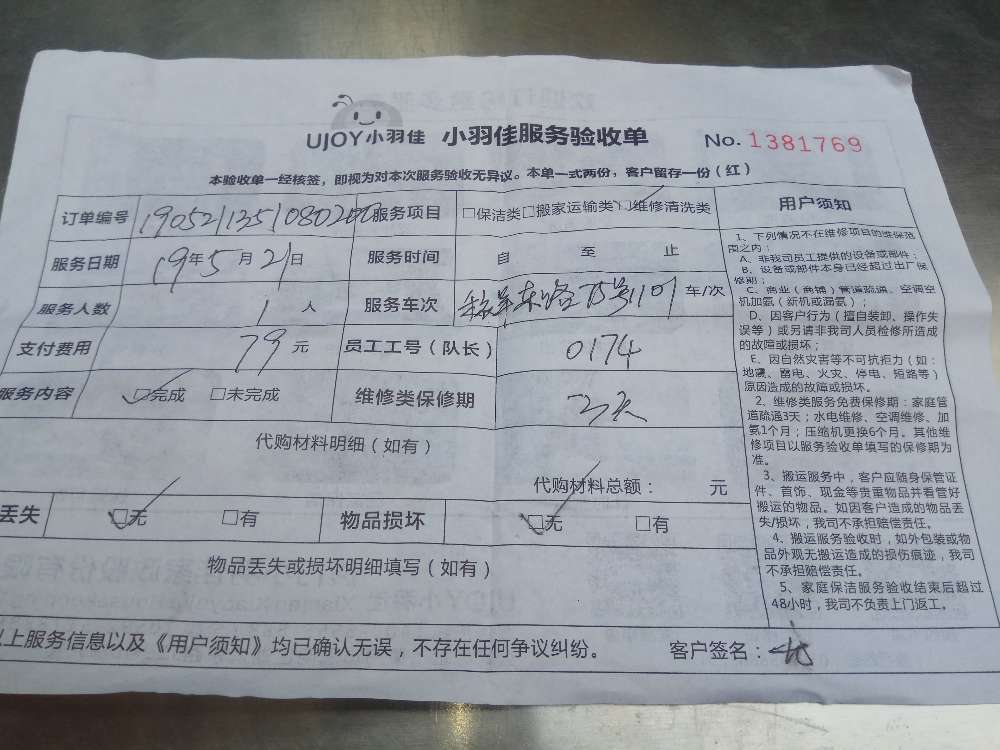 UJOY小羽佳 小羽佳服务验收单 No. 1381769
本验收单一经核签，即视为对本次服务验收无异议。本单一式两份，客户留存一份（红）
订单编号 服务项目 □保洁类□搬家运输类□维修清洗类
服务日期 19年5月21日 服务时间 自 至 止
服务人数 1人 服务车次 东路75号1101 车/次
支付费用 79元 员工工号（队长） 0174
服务内容 □完成 □未完成 维修类保修期 3天
代购材料明细（如有）
代购材料总额： 元
丢失 □无 □有 物品损坏 □无 □有
物品丢失或损坏明细填写（如有）
上服务信息以及《用户须知》均已确认无误，不存在任何争议纠纷。 客户签名：
用户须知
1、下列情况不在维修项目的维保范
围之内：
A、非我司员工提供的设备或部件；
B、设备或部件本身已经超过出厂保
修期；
C、商业（商铺）管道疏通、空调空
机加氨（新机或漏氨）；
D、因客户行为（擅自装卸、操作失
误等）或另请非我司人员检修所造成
的故障或损坏；
E、因自然灾害等不可抗拒力（如：
地震、雷电、火灾、停电、短路等）
原因造成的故障或损坏。
2、维修类服务免费保修期：家庭管
道疏通3天；水电维修、空调维修、加
氨1个月；压缩机更换6个月。其他维
修项目以服务验收单填写的保修期为
准。
3、搬运服务中，客户应随身保管证
件、首饰、现金等贵重物品并看管好
搬运的物品。如因客户造成的物品丢
失/损坏，我司不承担赔偿责任。
4、搬运服务验收时，如外包装或物
品外观无搬运造成的损伤痕迹，我司
不承担赔偿责任。
5、家庭保洁服务验收结束后超过
48小时，我司不负责上门返工。